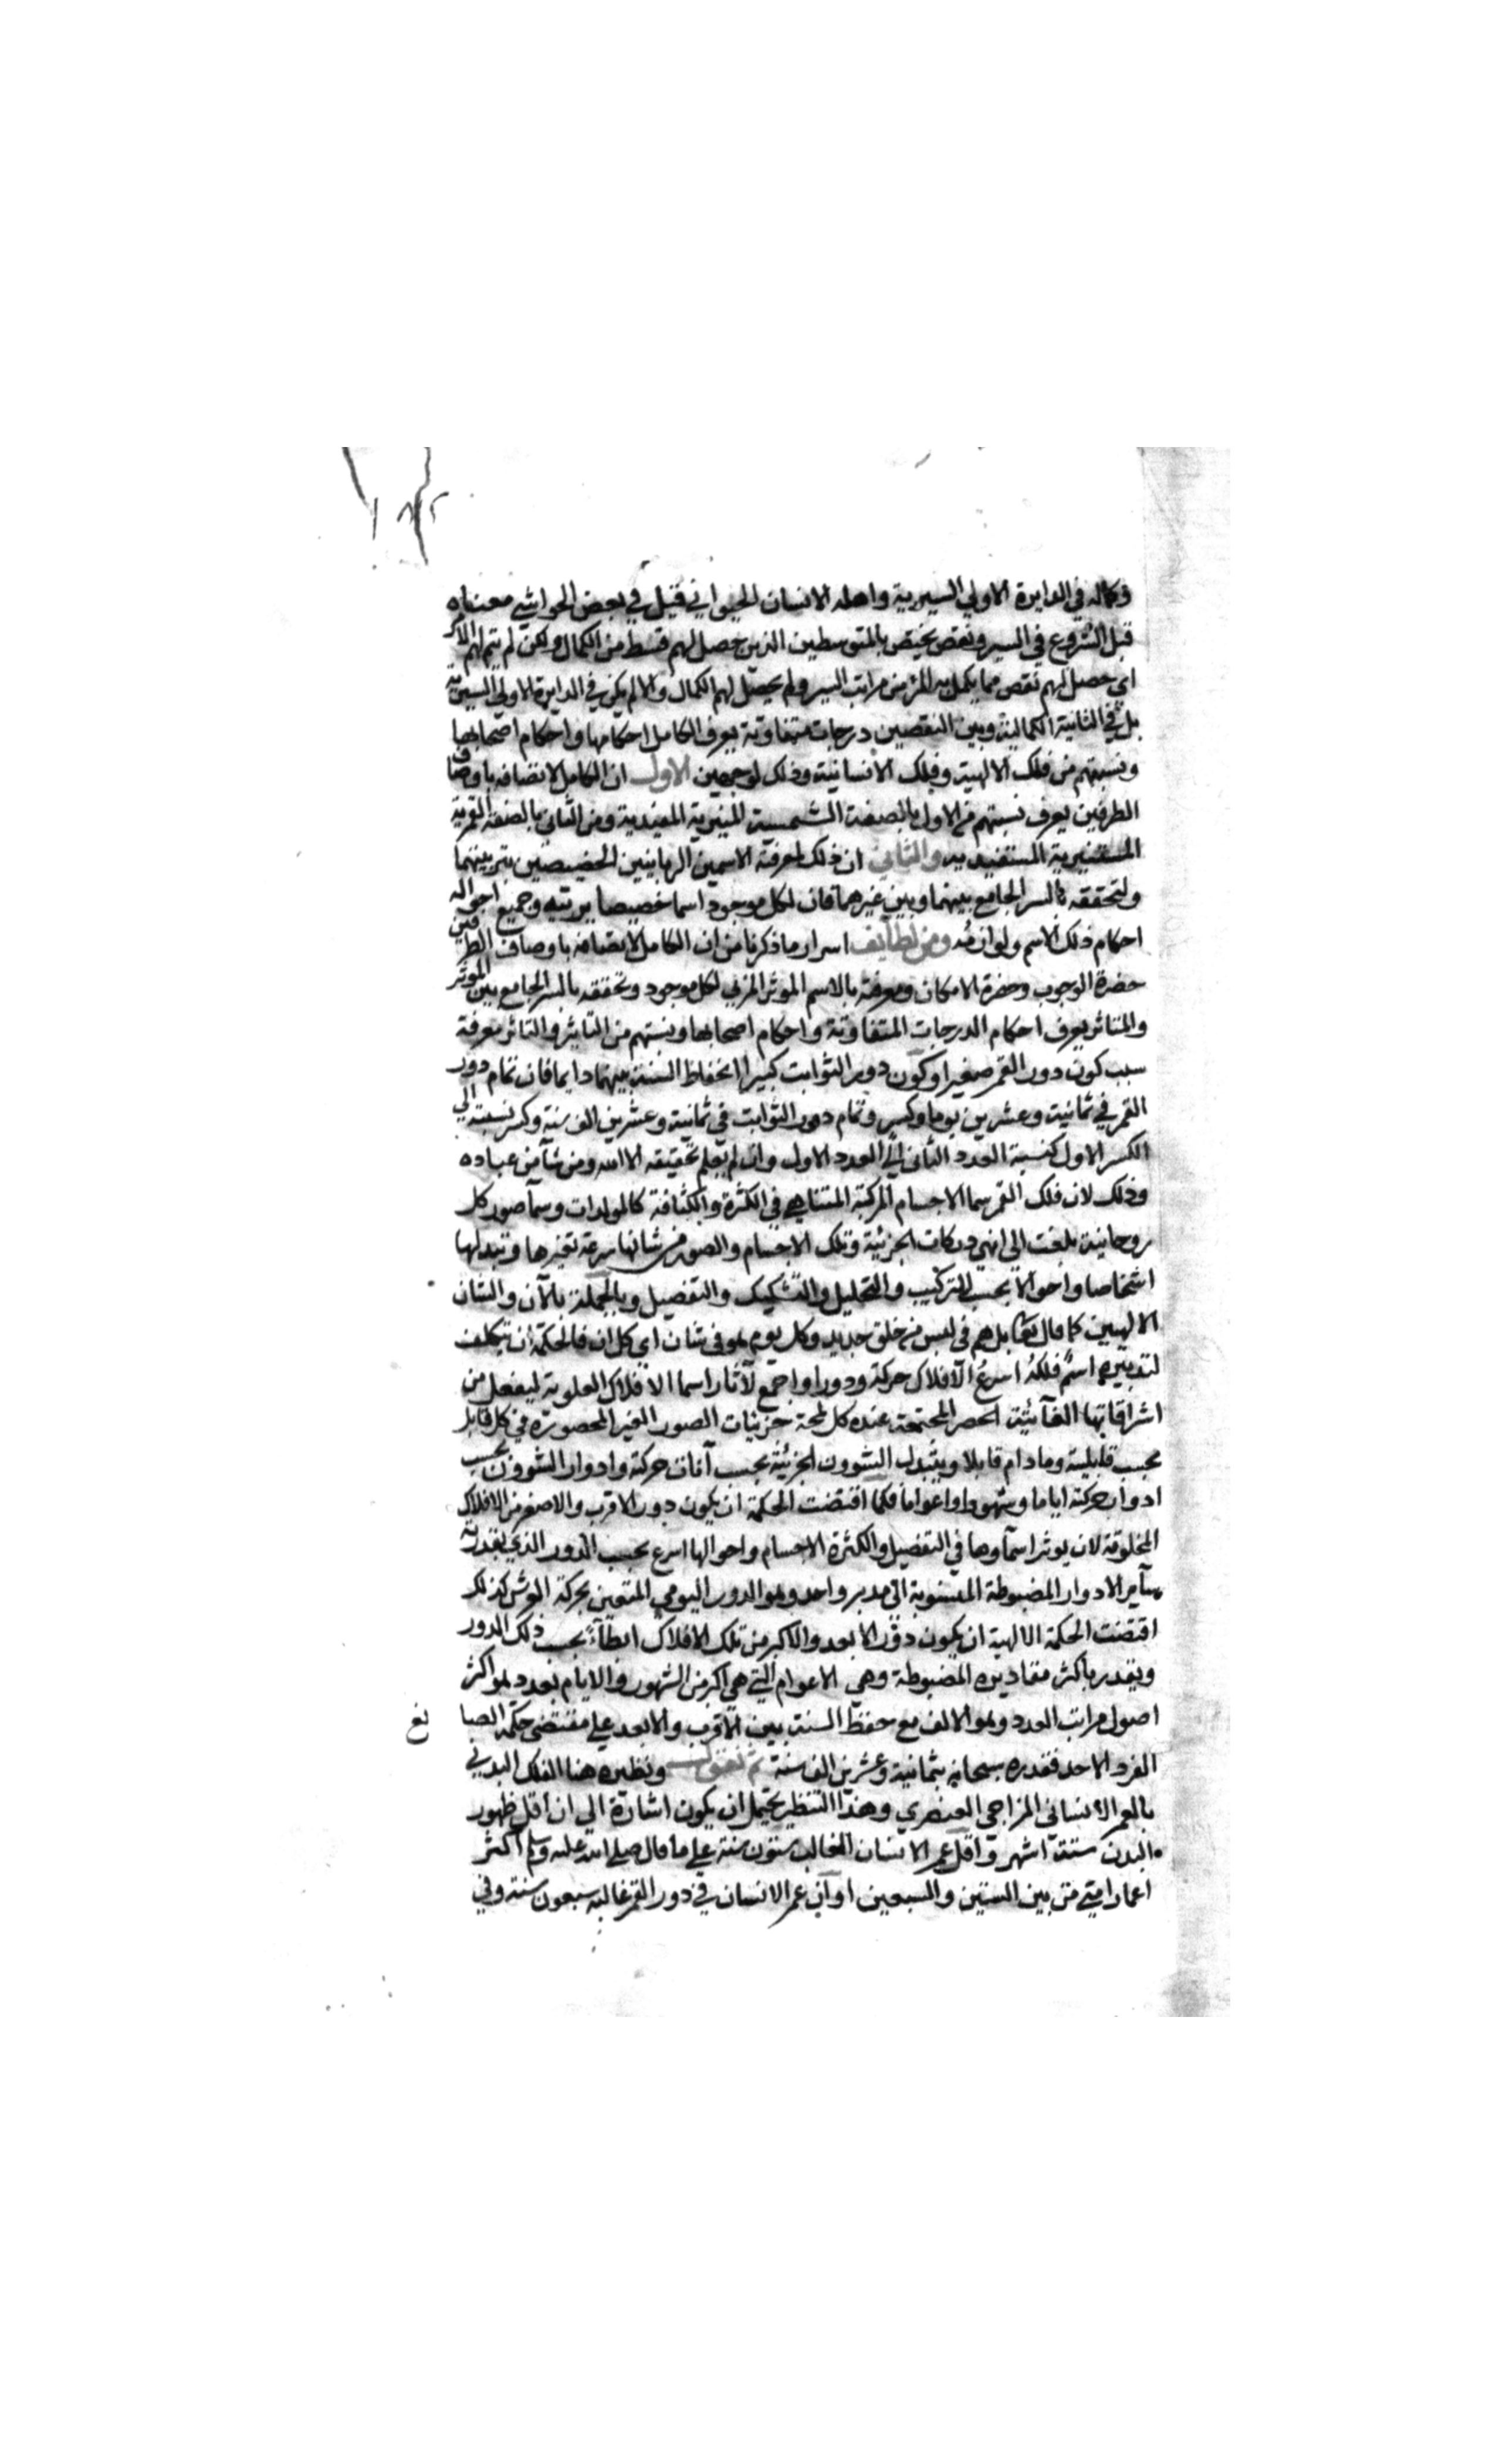 ١٨٢
وكماله في الدايرة الاولي السيرية واهله الانسان الحيواني قيل في بعض الحواشي معناه
قبل الشروع في السير ونقص يختص بالمتوسطين الذين حصل لهم قسط من الكمال ولكن لم يتم لهم الامر
اي حصل لهم نقص مما يكمل به المرء من مراتب السير ولم يحصل لهم الكمال والا لم يكن في الدايرة الاولي السيرية
بل في الثانية الكمالية وبين النقصين درجات متفاوتة يعرف الكامل احكامها واحكام اصحابها
ونسبتهم من فلك الالهية وفلك الانسانية وذلك لوجهين الاول ان الكامل لاتصافه باوصاف
الطرفين يعرف نسبتهم من الاول بالصفة الشمسية المنيرية المفيدية ومن الثاني بالصفة القمرية
المستنيرية المستفيديه والثاني ان ذلك لمعرفة الاسمين الربانيين الخصيصين بتربيتهما
ولتحققه بالسر الجامع بينهما وبين غيرهما فان لكل موجود اسما خصيصا يربيه وجميع احواله
احكام ذلك الاسم ولوازمه ومن لطايف اسرار ما ذكرنا من ان الكامل لاتصافه باوصاف الطرفين
حضرة الوجوب وحضرة الامكان ومعرفته بالاسم الموثر المربي لكل موجود وتحققه بالسر الجامع بين الموثر
والمتاثر يعرف احكام الدرجات المتفاوتة واحكام اصحابها ونسبتهم من التاثير والتاثر معرفة
سبب كون دور القمر صغيرا وكون دور الثوابت كبيرا انحفاظ النسبة بينهما دايما فان تمام دور
القمر في ثمانية وعشرين يوما وكسر وتمام دور الثوابت في ثمانية وعشرين الف سنة وكسر نسبته الي
الكسر الاول كنسبة العدد الثاني الي العدد الاول وان لم يعلم تحقيقه الا الله ومن شآ من عباده
وذلك لان فلك القمر سما الاجسام المركبة المتناهي في الكثرة والكثافة كالمولدات وسمآ صور كل
روحانية بلغت الي انهي دركات الجزئية وتلك الاجسام والصور من شانها سرعة تغيرها وتبدلها
اشخاصا واحوالا بحسب التركيب والتحليل والتشكيك والتفصيل وبالجملة بالآن والشان
الالهيين كما قال تعا بل هم في لبس من خلق جديد وكل يوم هو في شان اي كل ان فالحكمة ان يتكلف
لتدبيره اسم فلكه اسرع الافلاك حركة ودورا واجمع لآثار اسما الافلاك العلوية ليفعل من
اشراقاتها الحصر المجتمعة عنده كل لمحة جزئيات الصور الغير المحصورة في كل قابل
بحسب قابليته وما دام قابلا ويتبدل الشوون الجزئية بحسب آنات حركته وادوار الشوون بحسب
ادوار حركته اياما وشهورا واعواما فكما اقتضت الحكمة ان يكون دور الاقرب والاصغر من الافلاك
المخلوقة لان يوثر اسمآوها في التفصيل والكثرة الاجسام واحوالها اسرع بحسب الدور الذي يقدر به
سآير الادوار المضبوطة المنسوبة الي مدبر واحد وهو الدور اليومي المتعين بحركة العرش كذلك
اقتضت الحكمة الالهية ان يكون دور الابعد والاكبر من تلك الافلاك ابطآء بحسب ذلك الدور
ويقدر باكثر مقاديره المضبوطة وهي الاعوام التي هي اكبر من الشهور والايام بعدد هو اكثر
اصول مراتب العدد وهو الالف مع حفظ النسبة بين الاقرب والابعد علي مقتضي حكمة الصا نع
الفرد الاحد فقدره سبحانه بثمانية وعشرين الف سنة ثم نقول ونظيره هنا الفلك البدني
بالعمر الانساني المزاجي العنصري وهذا التنظير يحتمل ان يكون اشارة الي ان اقل ظهور
البدن ستة اشهر واقل عمر الانسان الغالب ستون سنة علي ما قال صلي الله عليه وسلم اكثر
اعمار امتي من بين الستين والسبعين او ان عمر الانسان في دور القمر غالبه سبعون سنة وفي